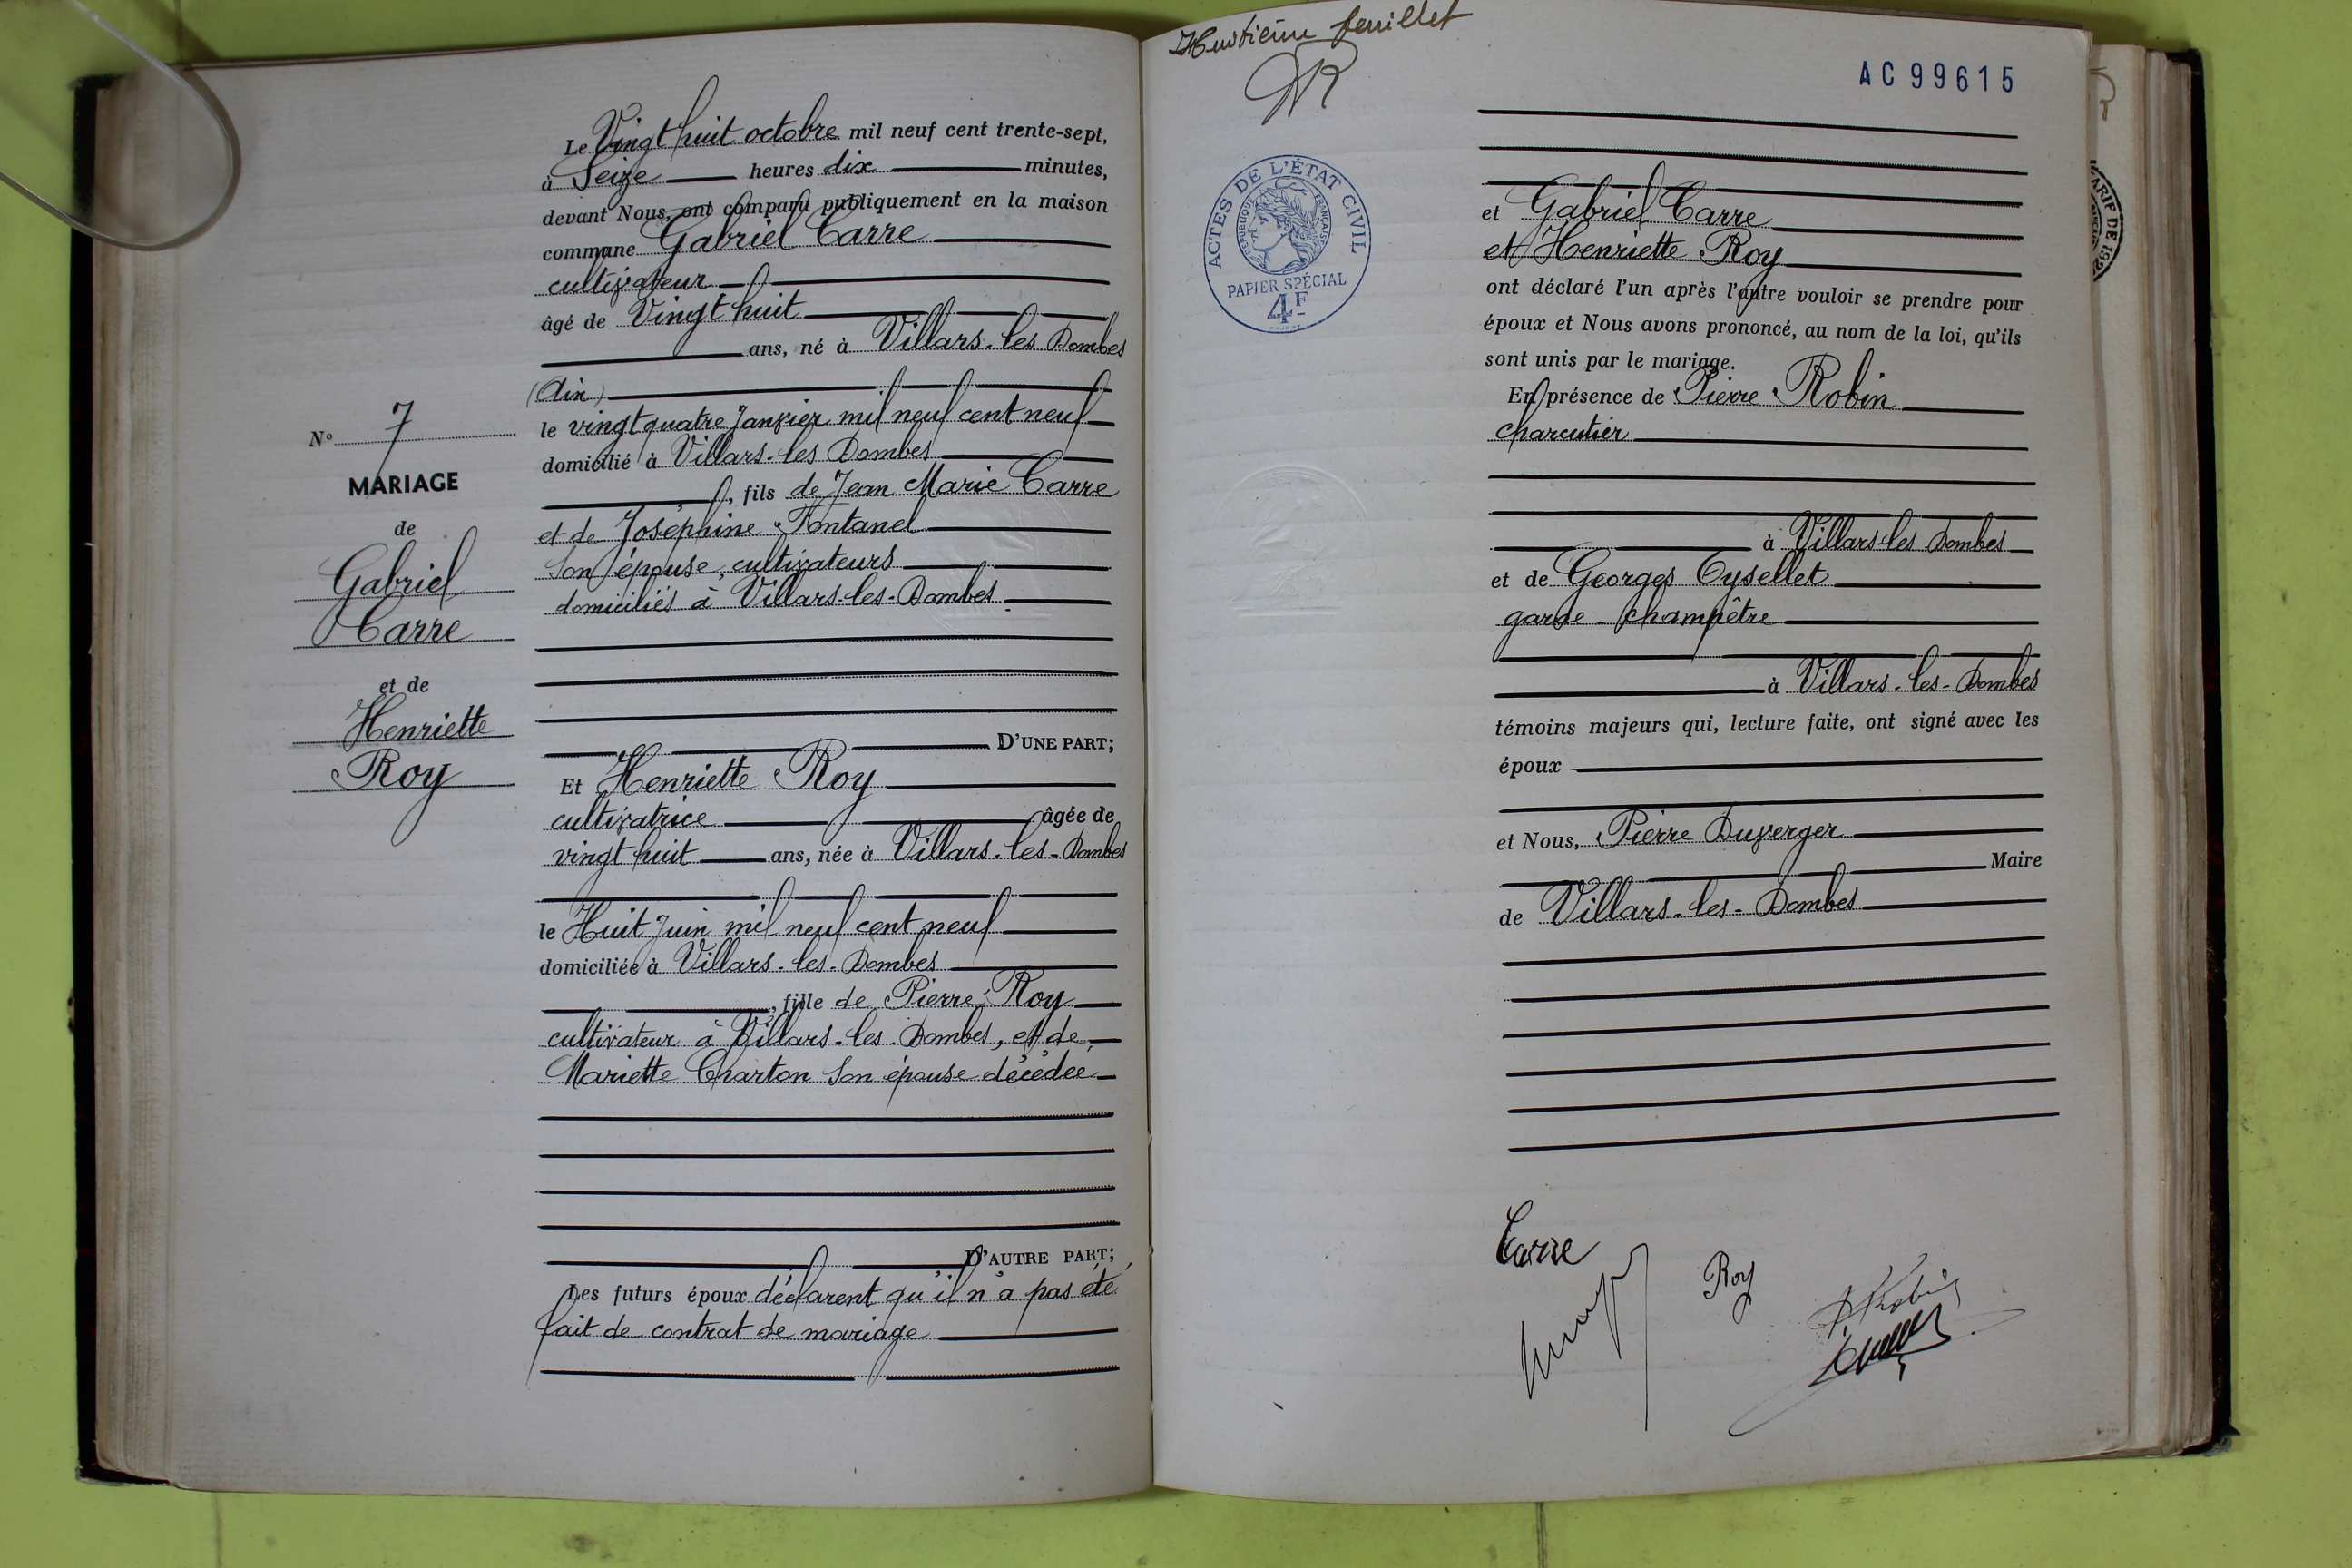 Le Vingt huit octobre mil neuf cent trente-sept,
à Seize heures dix minutes,
devant Nous, ont comparu publiquement en la maison
commune Gabriel Carre
cultivateur
âgé de Vingt huit
ans, né à Villars-les Dombes
(Ain)
le vingt quatre Janvier mil neuf cent neuf
domicilié à Villars-les Dombes
, fils de Jean Marie Carre
et de Joséphine Fontanel
Son épouse, cultivateurs
domiciliés à Villars-les-Dombes
D'UNE PART;
Et Henriette Roy
cultivatrice âgée de
vingt huit ans, née à Villars-les-Dombes
le Huit Juin mil neuf cent neuf
domiciliée à Villars-les-Dombes
, fille de Pierre Roy
cultivateur à Villars-les-Dombes, et de
Mariette Charton Son épouse décédée
D'AUTRE PART;
Les futurs époux déclarent qu'il n'a pas été
fait de contrat de mariage
N° 7
MARIAGE
de
Gabriel
Carre
et de
Henriette
Roy
Huitième feuillet
AC 99615
ACTES DE L'ÉTAT CIVIL
RÉPUBLIQUE FRANÇAISE
PAPIER SPÉCIAL
4F
et Gabriel Carre
et Henriette Roy
ont déclaré l'un après l'autre vouloir se prendre pour
époux et Nous avons prononcé, au nom de la loi, qu'ils
sont unis par le mariage.
En présence de Pierre Robin
charcutier
à Villars-les Dombes
et de Georges Cysellet
garde-champêtre
à Villars-les-Dombes
témoins majeurs qui, lecture faite, ont signé avec les
époux
et Nous, Pierre Duverger
Maire
de Villars-les-Dombes
Carre
Roy
P. Robin